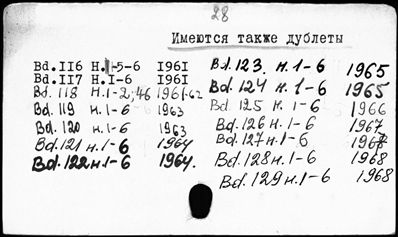 28
Имеются также дубли
Bd.116 H.1-5-6 1961
Bd.117 H.I-6 1961
Bd. 118 H.1-2,46 1961-62
Bd. 119 н.1-6 1963
Bd. 120 н.1-6 1963
Bd.121 н.1-6 1964
Bd.122 н.1-6 1964.
Bd.123. н.1-6 1965
Bd.124 н.1-6 1965
Bd 125 н.1-6 1966
Bd.126 н.1-6 1967
Bd.127 н.1-6
Bd.128 н.1-6 1968
Bd.129 н.1-6 1968